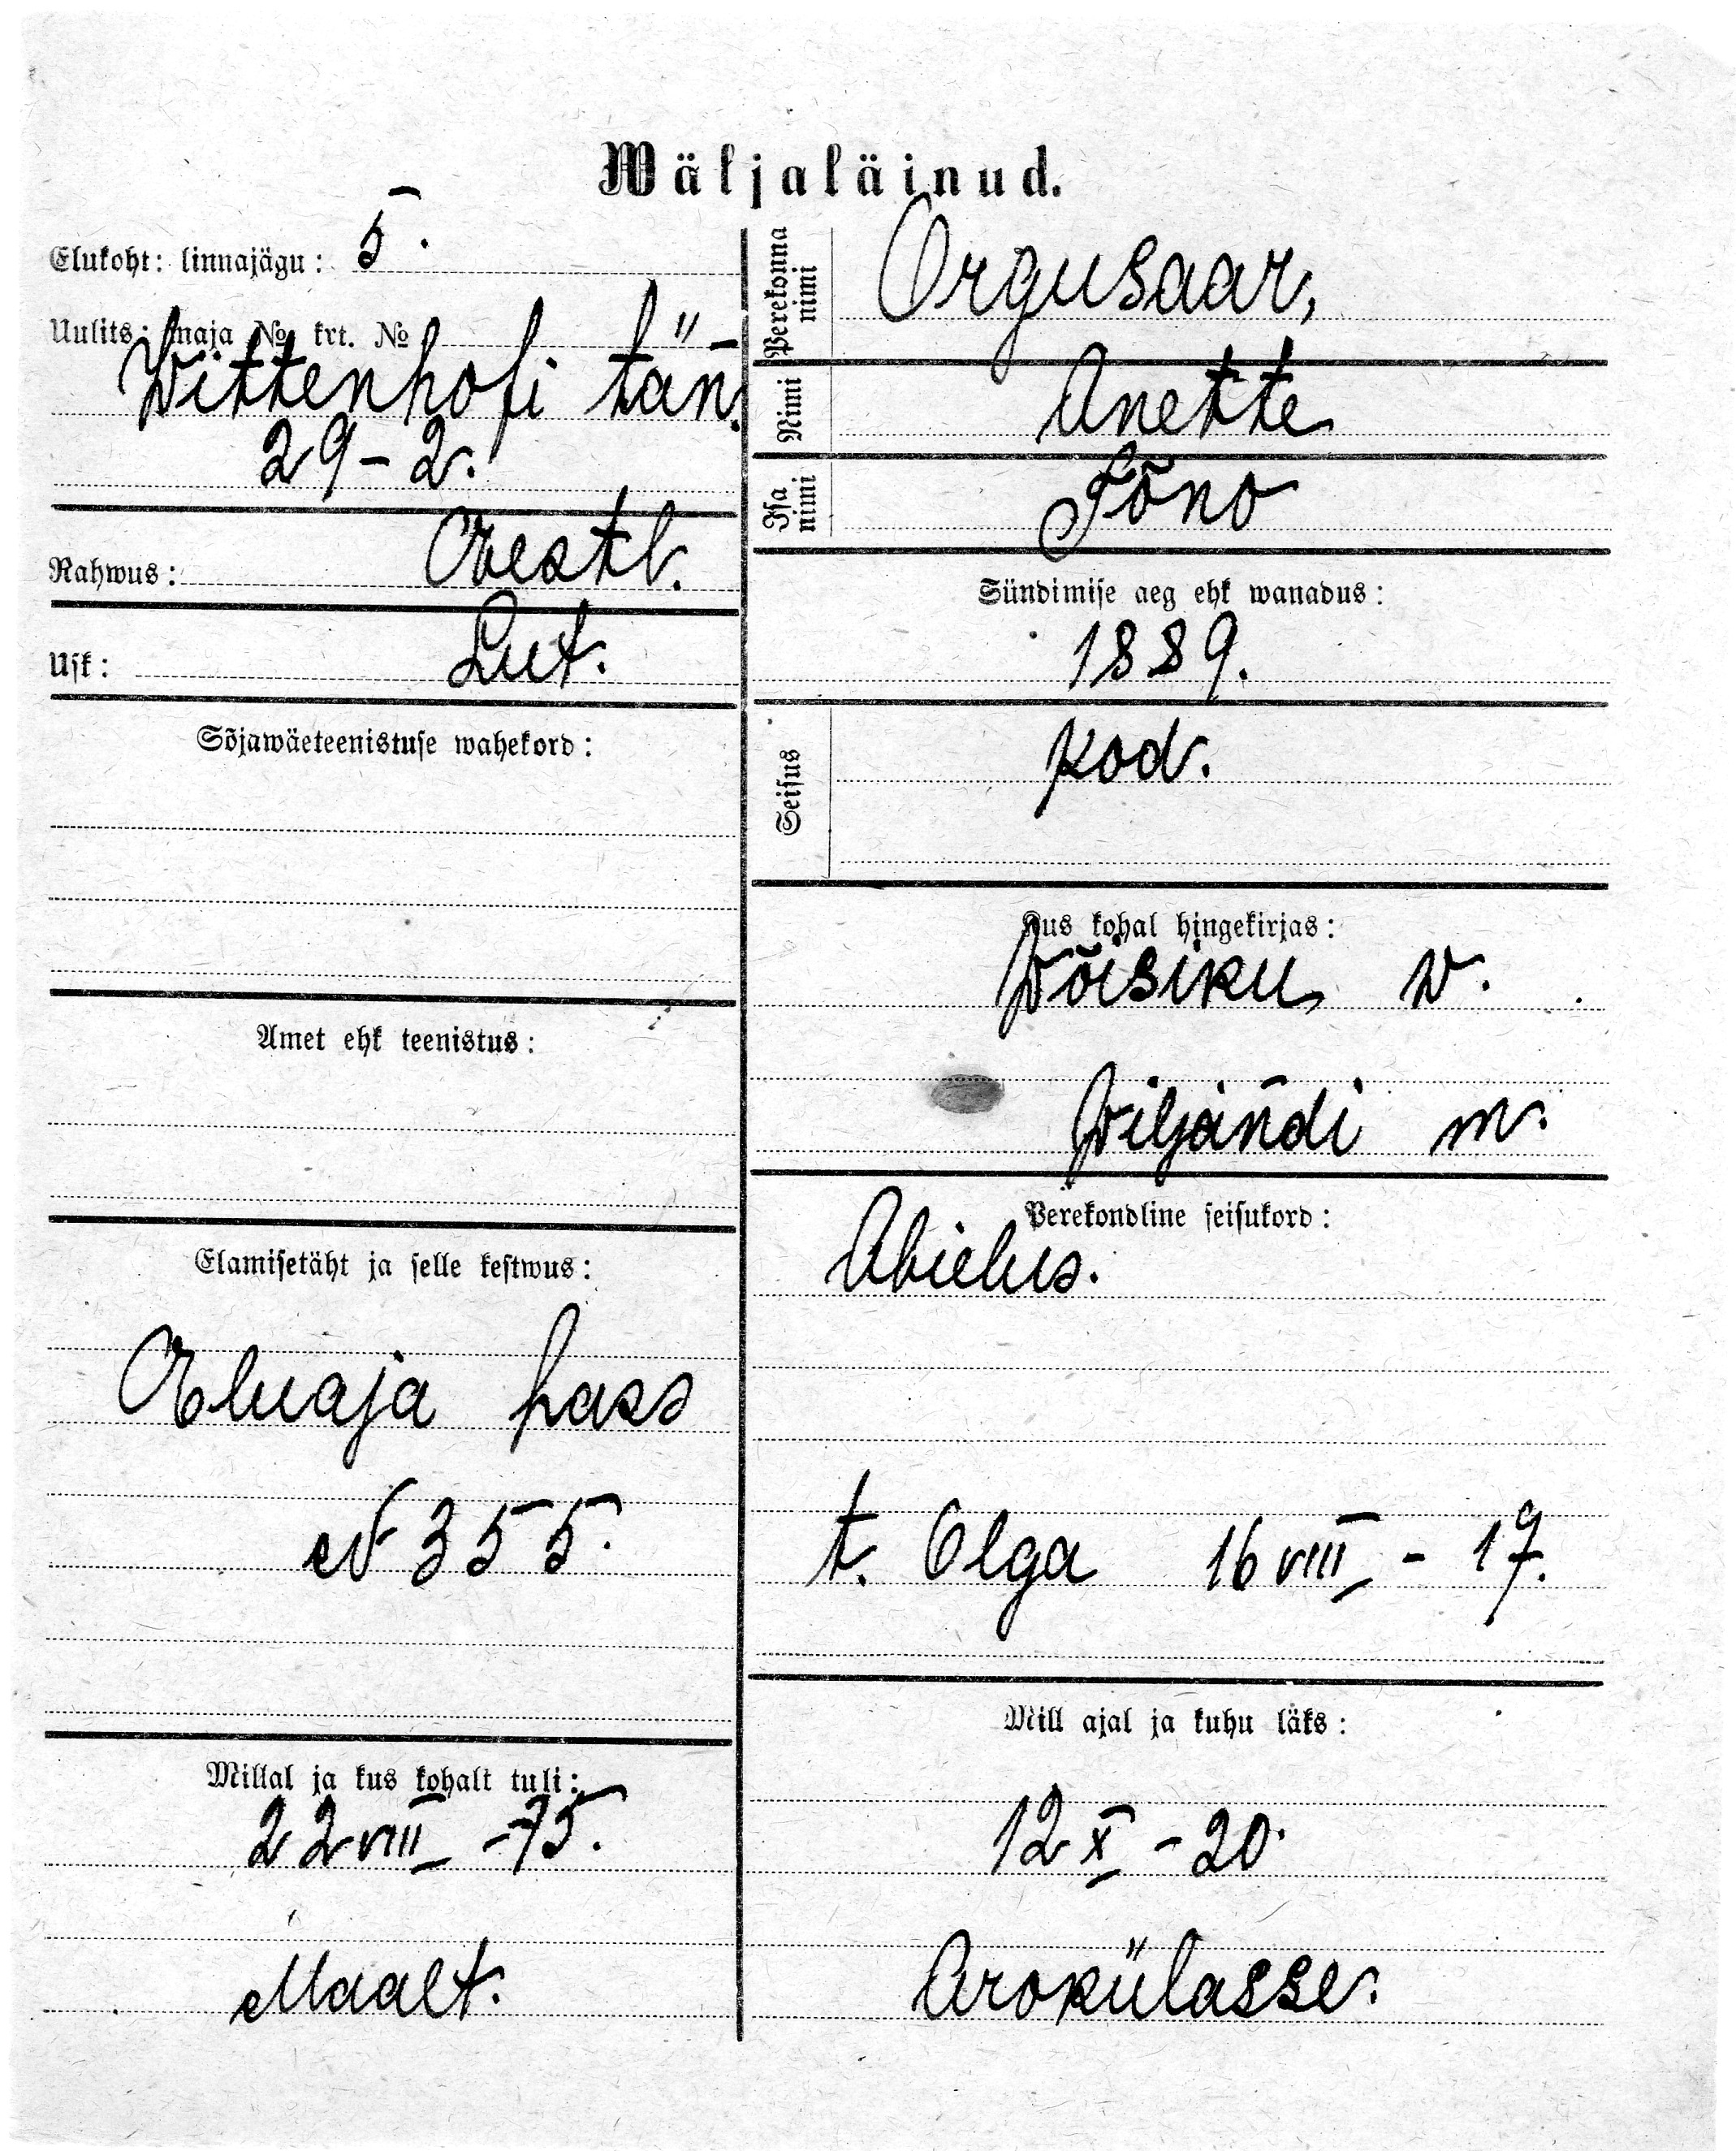 Wäljaläinud.
Elukoht: linnajägu: 5.
Uulits: maja № krt. №
Wittenhofi tän.
29-2.
Rahwus: Eestl.
Usk: Lut.
Sõjawäeteenistuse wahekord:
Amet ehk teenistus:
Elamisetäht ja selle kestwus:
Eluaja pass
N 355.
Millal ja kus kohalt tuli:
22 VIII -15.
Maalt.
Perekonna nimi Orgusaar,
Nimi Anette
Isa nimi Tõno
Sündimise aeg ehk wanadus:
1889.
Seisus kod.
Kus kohal hingekirjas:
Wõisiku w.
Wiljandi m.
Perekondline seisukord:
Abielus.
t. Olga 16 VIII - 17.
Mill ajal ja kuhu läks:
12 X - 20.
Arokülasse.